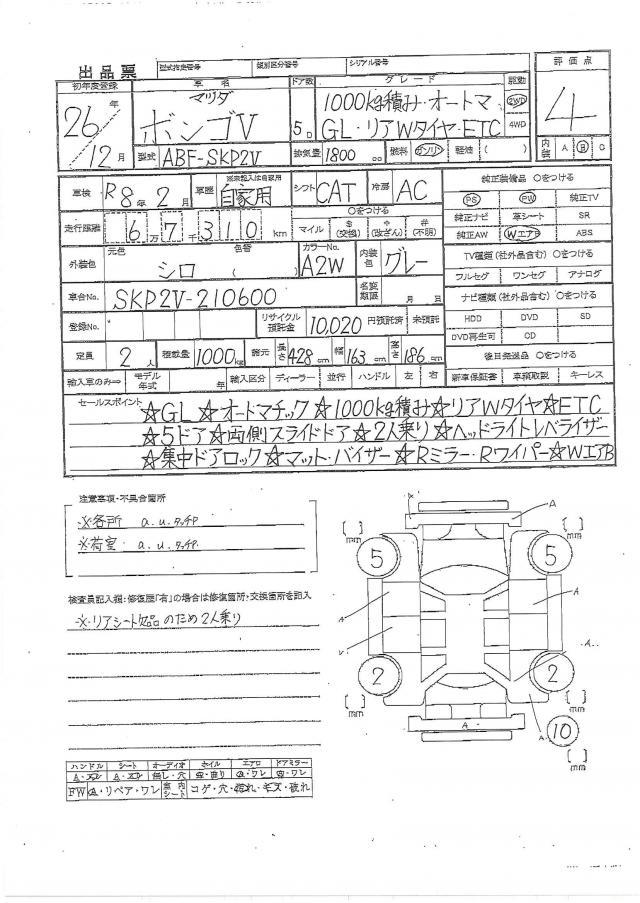 出品票 型式指定番号 類別区分番号 シリアル番号
初年度登録 車名 ドア数 グレード 駆動 評価点
26年 マツダ 1000kg積み・オートマ 2WD 4
ボンゴV 5D GL・リアWタイヤ・ETC 4WD
12月 型式 ABF-SKP2V 排気量 1800 cc 燃料 ガソリン 軽油 ( ) 内装 A B C
車検 R8年2月 車歴 自家用 シフト CAT 冷房 AC 純正装備品 ○をつける
PS PW 純正TV
走行距離 6万7千310km ○をつける
マイル $(交換) *(改ざん) #(不明) 純正ナビ 革シート SR
純正AW WエアB ABS
外装色 元色 シロ 色替 ( ) カラーNo. A2W 内装色 グレー TV種類(社外品含む) ○をつける
フルセグ ワンセグ アナログ
車台No. SKP2V-210600 名変期限 月 日 ナビ種類(社外品含む) ○をつける
HDD DVD SD
登録No. リサイクル預託金 10,020 円預託済 未預託 DVD再生可 CD
定員 2人 積載量 1000kg 諸元 長さ 428cm 幅 163cm 高さ 186cm 後日発送品 ○をつける
輸入車のみ⇒ モデル年式 年 輸入区分 ディーラー 並行 ハンドル 左 右 新車保証書 車輌取説 キーレス
セールスポイント ☆GL☆オートマチック☆1000kg積み☆リアWタイヤ☆ETC
☆5ドア☆両側スライドドア☆2人乗り☆ヘッドライトレベライザー
☆集中ドアロック☆マット・バイザー☆Rミラー・Rワイパー☆WエアB
注意事項・不具合箇所
※各所 a.u.タッチP
※荷室 a.u.タッチP
検査員記入欄:修復歴「有」の場合は修復箇所・交換箇所を記入
※リアシート欠品のため2人乗り
ハンドル シート オーディオ ホイル エアロ ドアミラー
A・スレ A・スレ 無し・穴 曲り ワレ ワレ
FW リペア・ワレ 車内シート コゲ・穴・汚れ・キズ・破れ
[ ] mm A [ ] mm
5 5
A A
V A
2 2
[ ] mm A A 10 [ ] mm
[ ] mm